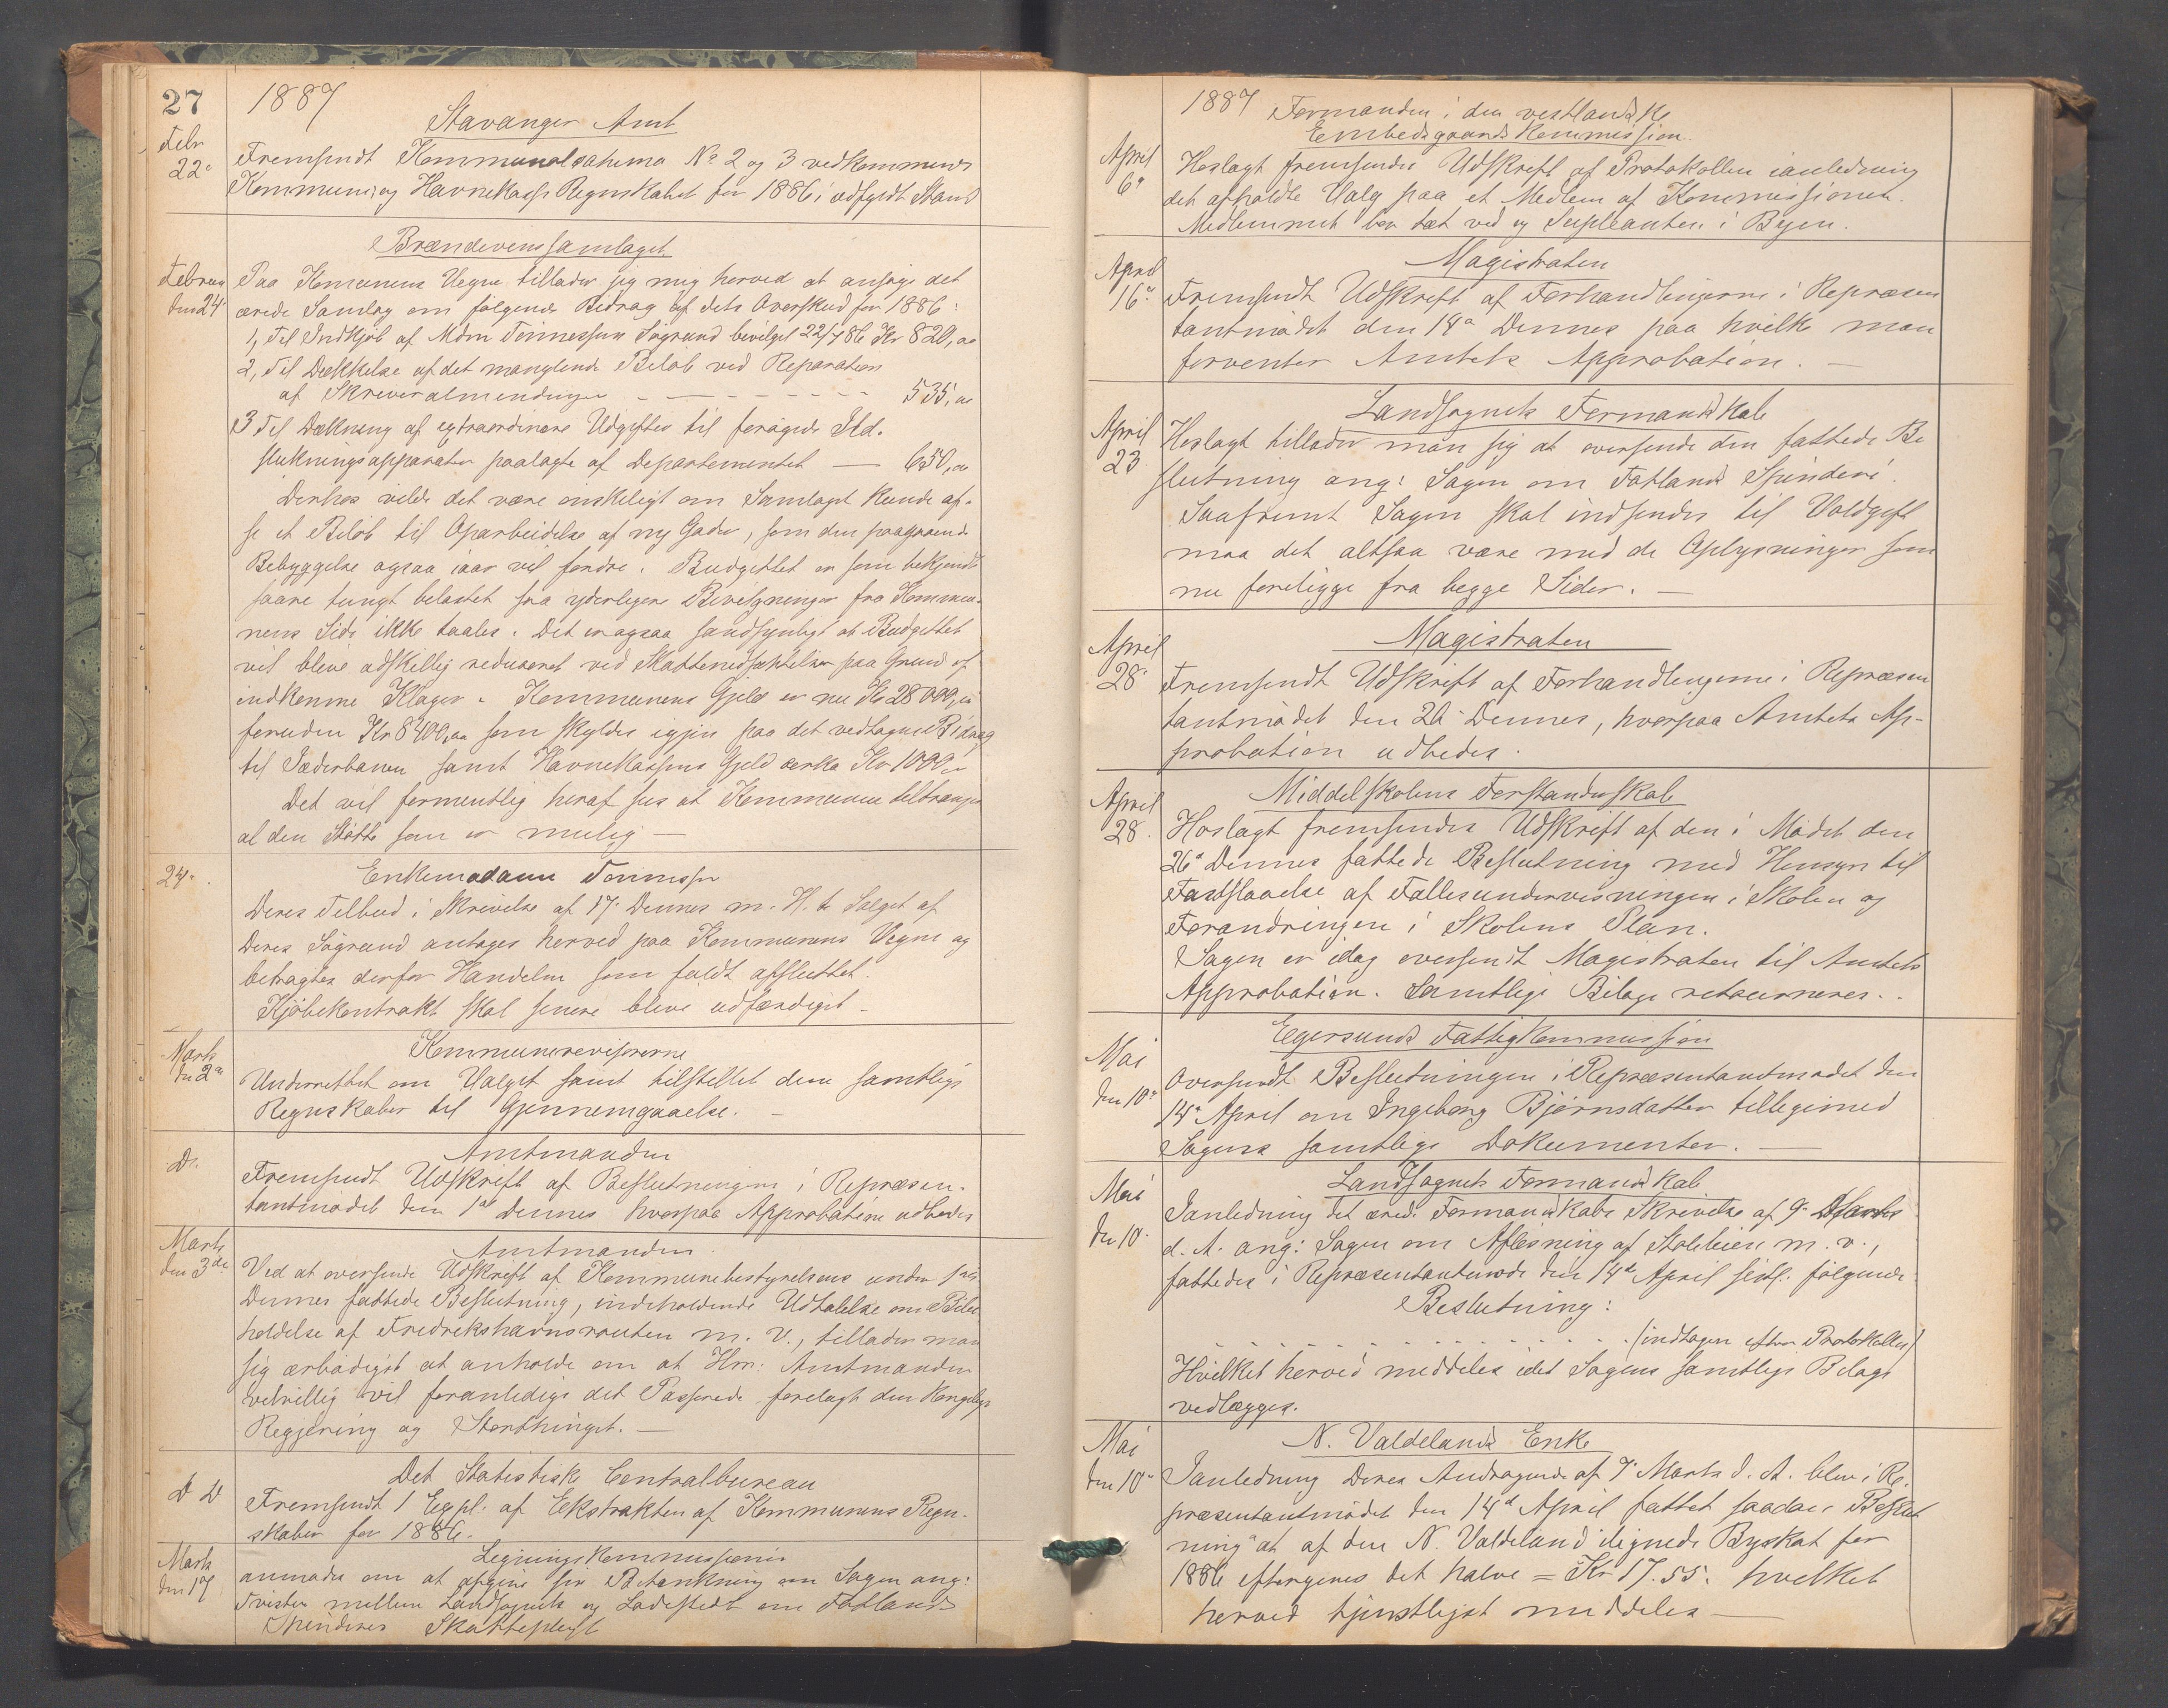 27
1887
Stavanger Amt
Febr
22de
Fremsendt Kommunalskema No 2 og 3 vedkommende
Kommune og Havnekasse Regnskabet for 1886 i udfyldt Stand
Brændevinssamlaget
Februar
den 24de
Paa Komunens Vegne tillader jeg mig herved at ansøge det
ærede Samlag om følgende Bidrag af dets Overskud for 1886:
1, Til Indkjøb af Mdm Tønnessens Søgrund bevilget 22/7 86 Kr 820,00
2, Til Dækkelse af det manglende Beløb ved Reparation
af Skriveralmendingen - - - - - - - 535,00
3 Til Dækning af extraordinære Udgifter til forøgede Ild.
slukningsapparater paalagte af Departementet — 650,00
Derhos vilde det være ønskeligt om Samlaget kunde af-
se et Beløb til Oparbeidelse af ny Gader, som den paagaaende
Bebyggelse ogsaa iaar vil fordre. Budgettet er som bekjendt
saare tungt belastet saa yderligere Bevilgninger fra Kommu-
nens Side ikke taales. Det er ogsaa sandsynligt at Budgettet
vil blive adskillig reduseret ved Skattenedsættelser paa Grund af
indkomne Klager. Kommunens Gjeld er nu Kr 28000,00
foruden Kr 8400,00 som skyldes igjen paa det vedtagne Bidrag
til Jæderbanen samt Havnekassens Gjeld cirka Kr 1000,00
Det vil formentlig heraf sees at Kommunen tiltrænger
al den Støtte som er mulig —
24de
Enkemadam Tønnessen
Deres Tilbud i Skrivelse af 17de Dennes m. H. t. Salget af
Deres Søgrund antages herved paa Kommunens Vegne og
betragtes derfor Handelen som fuldt afsluttet.
Kjøbekontrakt skal senere blive udfærdiget —
Marts
den 2den
Kommunerevisorerne
Underrettet om Valget samt tilstillet dem samtlige
Regnskaber til Gjennemgaaelse. —
Do.
Amtmanden
Fremsendt Udskrift af Beslutningen i Repræsen-
tantmødet den 1ste Dennes hvorpaa Approbation udbedes
Marts
den 3die
Amtmanden
Ved at oversende Udskrift af Kommunebestyrelsens under 1ste
Dennes fattede Beslutning, indeholdende Udtalelse om Bibe
holdelse af Fredrikshavnsrouten m. v., tillader man
sig ærbødigst at anholde om at Hr. Amtmanden
velvillig vil foranledige det Passerede forelagt den Kongelige
Regjering og Storthinget. —
D D
Det Statistiske Centralbureau
Fremsendt 1 Expl. af Ekstrakten af Kommunens Regn-
skaber for 1886.
Marts
den 17
Ligningskommissionen
anmodet om at afgive sin Betænkning om Sagen ang:
Tvisten mellem Landsognets og Ladestedet om Fotlands
Spinderies Skattepligt
1887
Formanden i den vestlandske
Embedsgaards Kommission.
April
6te
Hoslagt fremsendes Udskrift af Protokollen ianledning
det afholdte Valg paa et Medlem af Kommissionen.
Medlemmet bor tæt ved og Supleanten i Byen.
Magistraten
April
16de
Fremsendt Udskrift af Forhandlingerne i Repræsen
tantmødet den 14de Dennes paa hvilke man
forventer Amtets Approbation. —
Landsognets Formandskab
April
23
Hoslagt tillader man sig at oversende den fattede Be
slutning ang: Sagen om Fotlands Spinderi.
Saafremt Sagen skal indsendes til Voldgift
maa det altsaa være med de Oplysninger som
nu foreligge fra begge Sider. —
Magistraten
April
28de
Fremsendt Udskrift af Forhandlingerne i Repræsen
tantmødet den 26de Dennes, hvorpaa Amtets Ap-
probation udbedes.
Middelskolens Forstanderskab
April
28.
Hoslagt fremsendes Udskrift af den i Mødet den
26de Dennes fattede Beslutning med Hensyn til
Fastslaaelse af Fællesundervisningen i Skolen og
Forandringen i Skolens Plan.
Sagen er idag oversendt Magistraten til Amtets
Approbation. Samtlige Bilage retourneres. .
Egersunds Fattigkommission
Mai
den 10de
Oversendt Beslutningen i Repræsentantmødet den
14de April om Ingeborg Bjørnsdatter tilligemed
Sagens samtlige Dokumenter. —
Landsognets Formandskab
Mai
den 10.
Ianledning det ærede Formandskabs Skrivelse af 9de Marts
d. A. ang: Sagen om Afløsning af Stolileien m. v.,
fattedes i Repræsentantmøde den 14de April sidstl. følgende
Beslutning:
. . . . . . . . . . . . . . . . (indtagen efter Protokollen)
Hvilket herved meddeles idet Sagens samtlige Bilage
vedlægges.
N. Valdelands Enke
Mai
den 10de
Ianledning Deres Andragende af 7de Marts d. A. blev i Re-
præsentantmødet den 14de April fattet saadan Beslut
ning "at af den N. Valdeland ilignede Byskat for
1886 eftergives det halve = Kr 17.55. hvilket
herved tjenstligst meddeles —